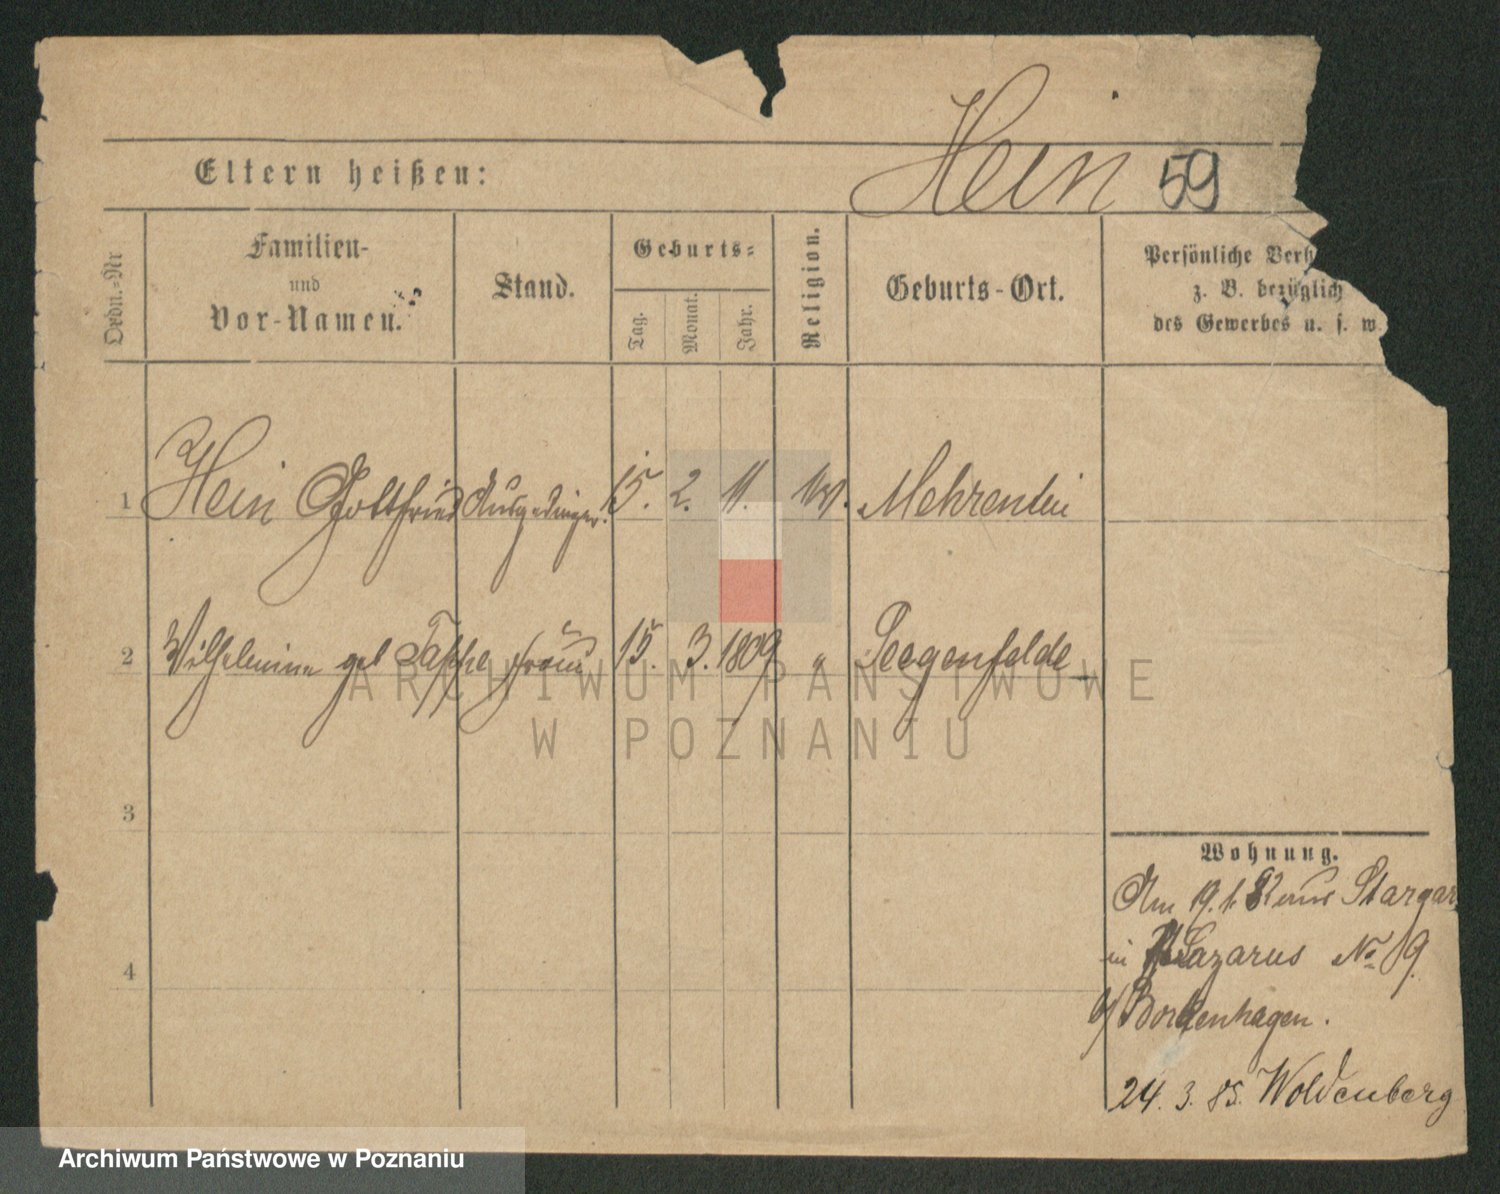 Hein 59
Eltern heißen:
Ordn.-Nr
Familien-
und
Vor-Namen.
Stand.
Geburts-
Tag.
Monat.
Jahr.
Religion.
Geburts-Ort.
Persönliche Verh
z. B. bezüglich
des Gewerbes u. s. w
1 Hein Gottfried Ausgedinger. 15. 2. 11. ev. Mehrentin
2 Wilhelmine geb Tasche Frau 15. 3. 1809 " Seegenfelde
3
4
Wohnung.
Am 19. 1. aus Stargar
in Lazarus No 9
b/ Borkenhagen.
24. 3. 85. Woldenberg
ARCHIWUM PAŃSTWOWE
W POZNANIU
Archiwum Państwowe w Poznaniu